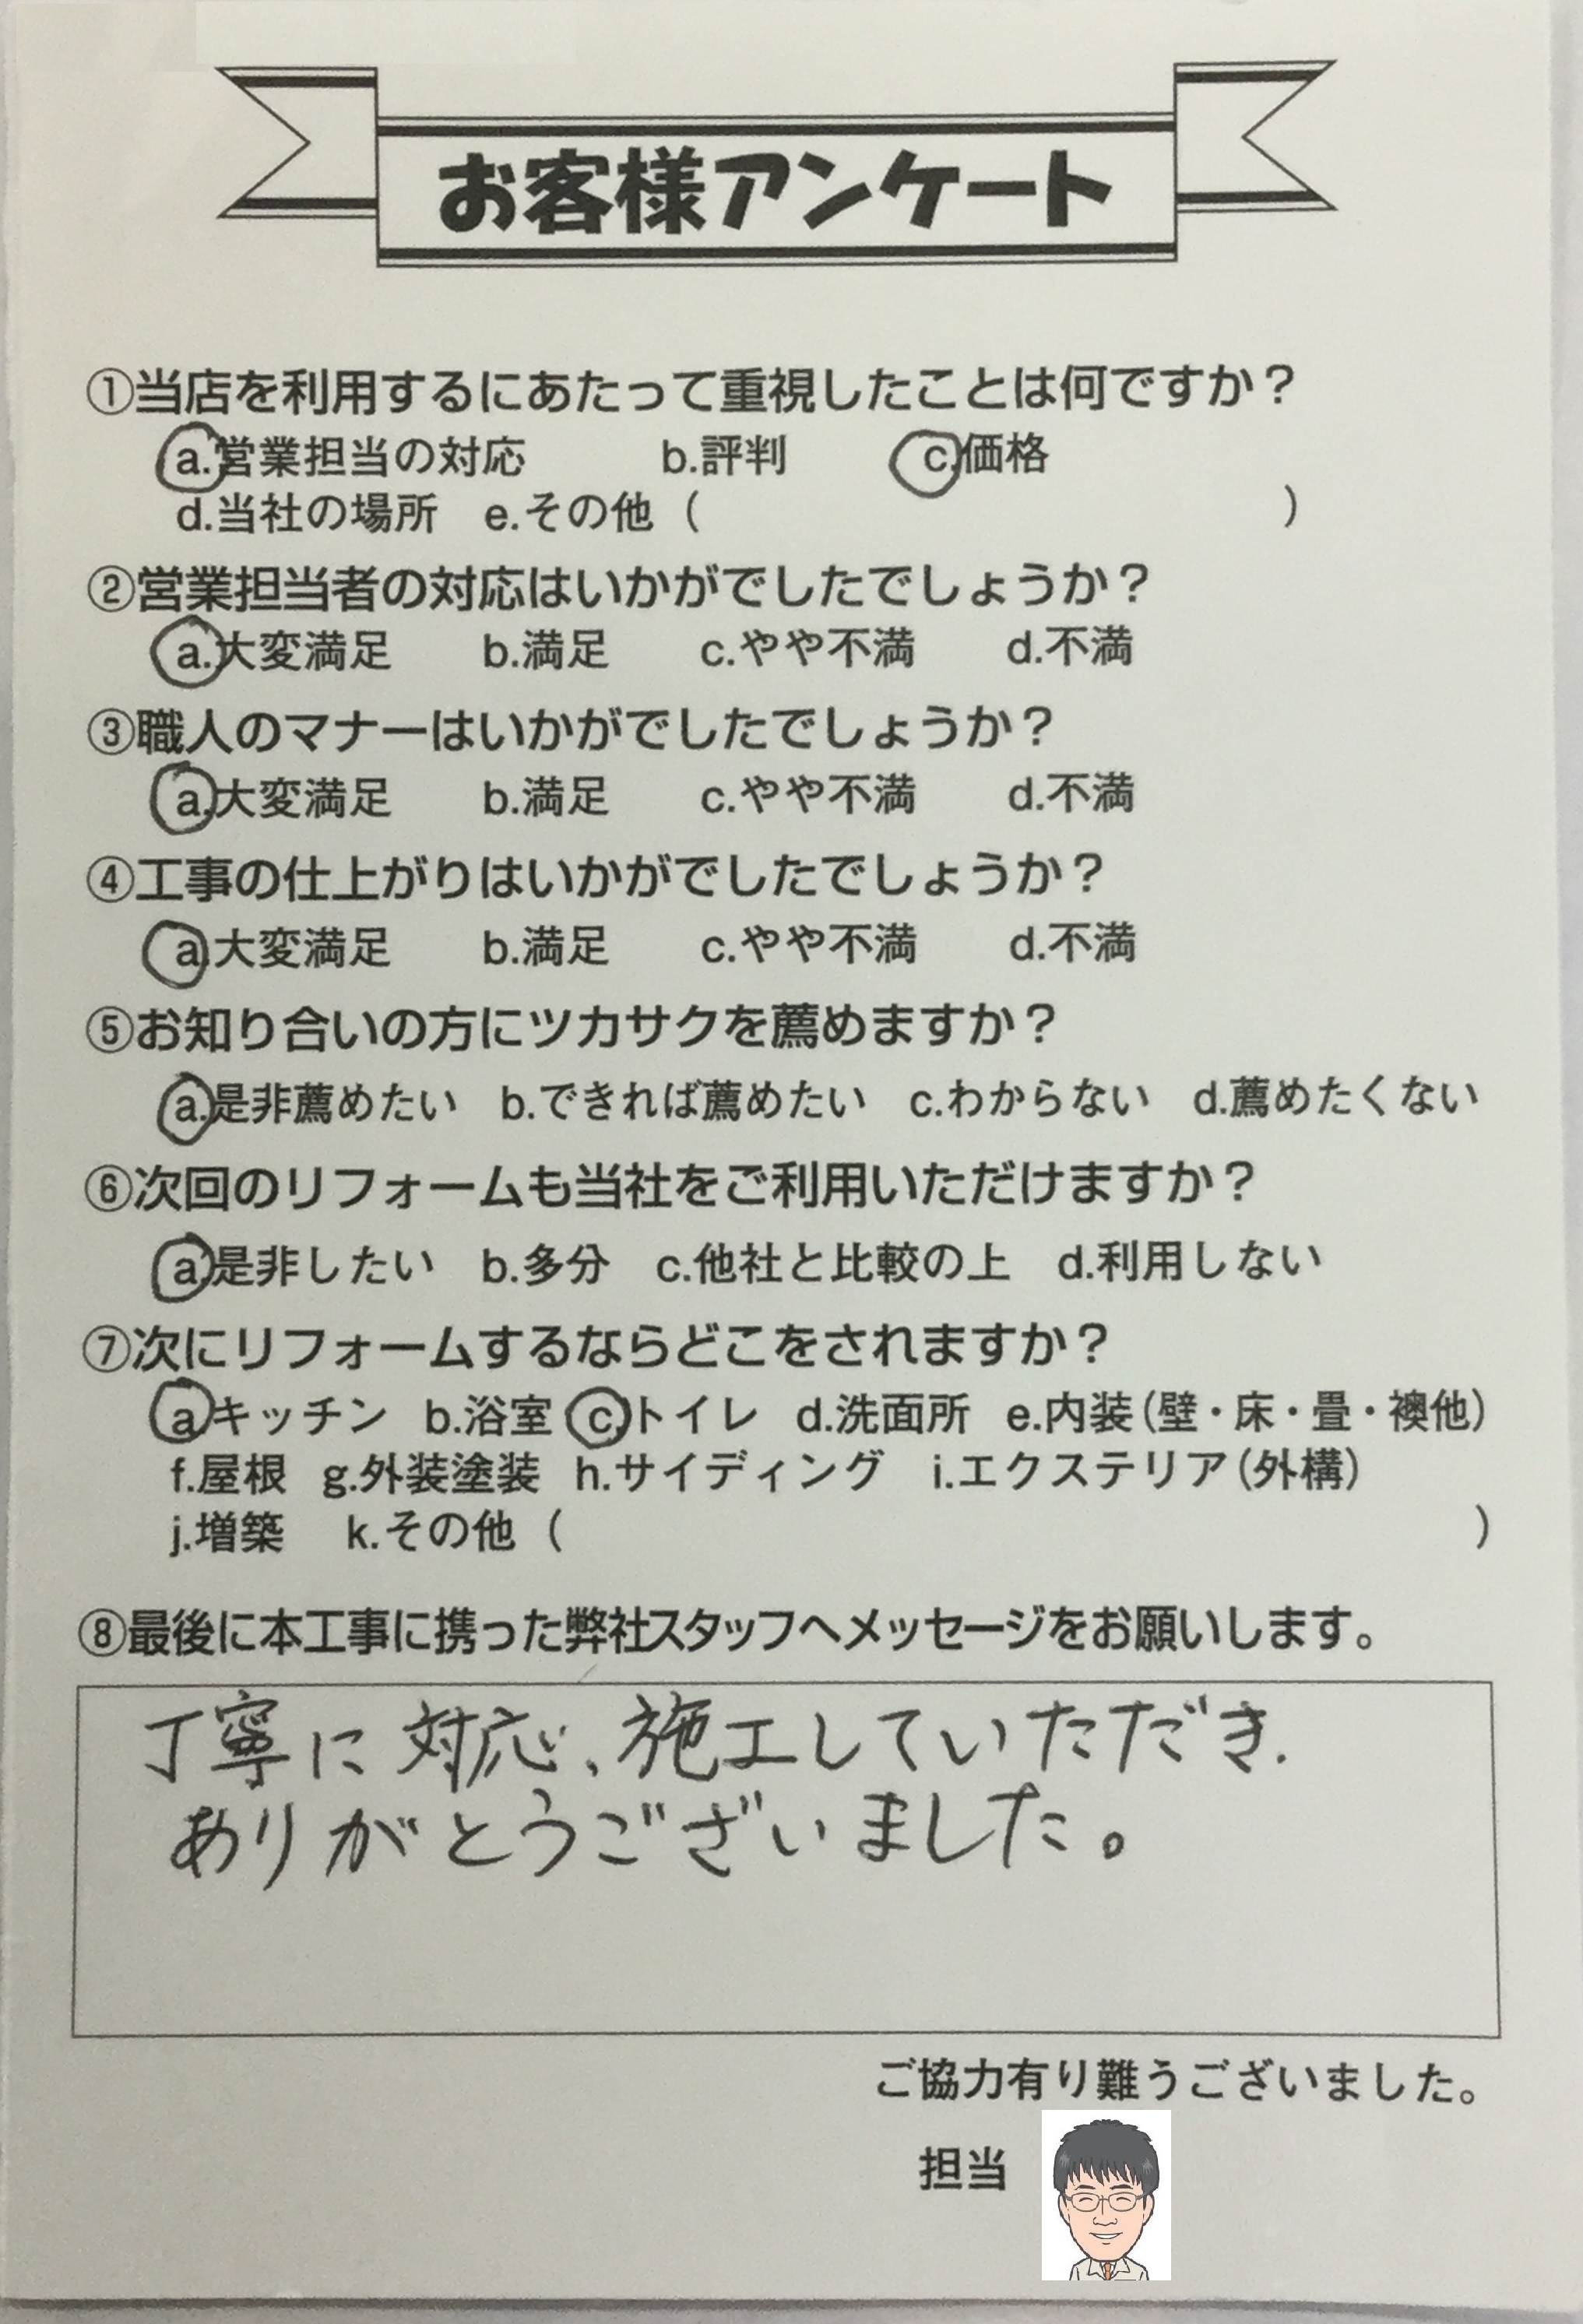 お客様アンケート
①当店を利用するにあたって重視したことは何ですか？
a.営業担当の対応 b.評判 c.価格
d.当社の場所 e.その他（ ）
②営業担当者の対応はいかがでしたでしょうか？
a.大変満足 b.満足 c.やや不満 d.不満
③職人のマナーはいかがでしたでしょうか？
a.大変満足 b.満足 c.やや不満 d.不満
④工事の仕上がりはいかがでしたでしょうか？
a.大変満足 b.満足 c.やや不満 d.不満
⑤お知り合いの方にツカサクを薦めますか？
a.是非薦めたい b.できれば薦めたい c.わからない d.薦めたくない
⑥次回のリフォームも当社をご利用いただけますか？
a.是非したい b.多分 c.他社と比較の上 d.利用しない
⑦次にリフォームするならどこをされますか？
a.キッチン b.浴室 c.トイレ d.洗面所 e.内装（壁・床・畳・襖他）
f.屋根 g.外装塗装 h.サイディング i.エクステリア（外構）
j.増築 k.その他（ ）
⑧最後に本工事に携った弊社スタッフへメッセージをお願いします。
丁寧に対応、施工していただき、
ありがとうございました。
ご協力有り難うございました。
担当